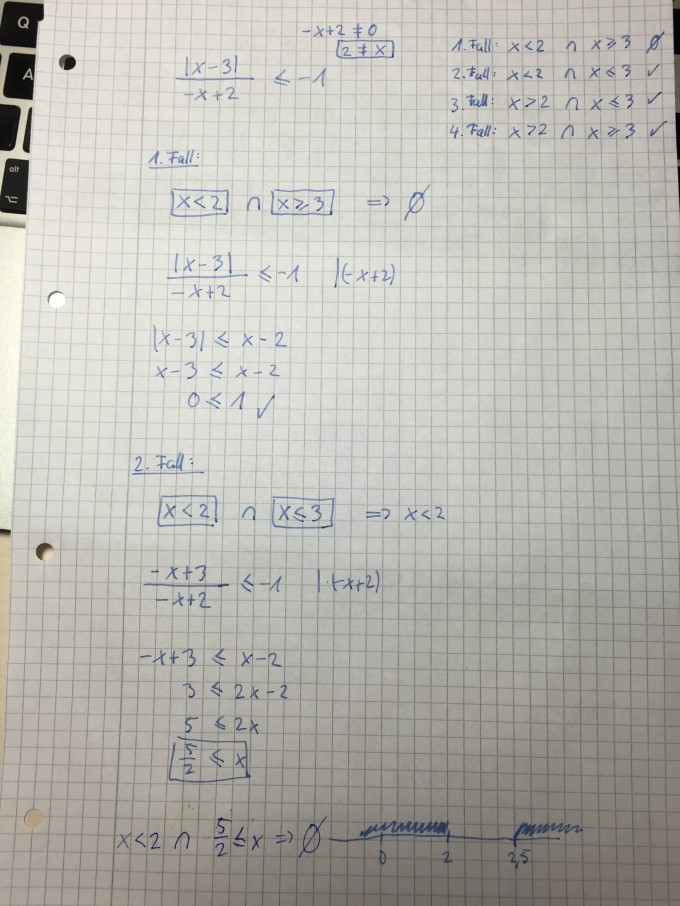 Q
A
alt
-x+2 ≠ 0
2 ≠ x
|x-3| / -x+2 ≤ -1
1. Fall: x<2 ∩ x≥3 ∅
2. Fall: x<2 ∩ x≤3 ✓
3. Fall: x>2 ∩ x≤3 ✓
4. Fall: x>2 ∩ x≥3 ✓
1. Fall:
x<2 ∩ x≥3 => ∅
|x-3| / -x+2 ≤ -1 |(-x+2)
|x-3| ≤ x-2
x-3 ≤ x-2
0 ≤ 1 ✓
2. Fall:
x<2 ∩ x≤3 => x<2
-x+3 / -x+2 ≤ -1 |·(-x+2)
-x+3 ≤ x-2
3 ≤ 2x-2
5 ≤ 2x
5/2 ≤ x
x<2 ∩ 5/2 ≤ x => ∅
0 2 2,5